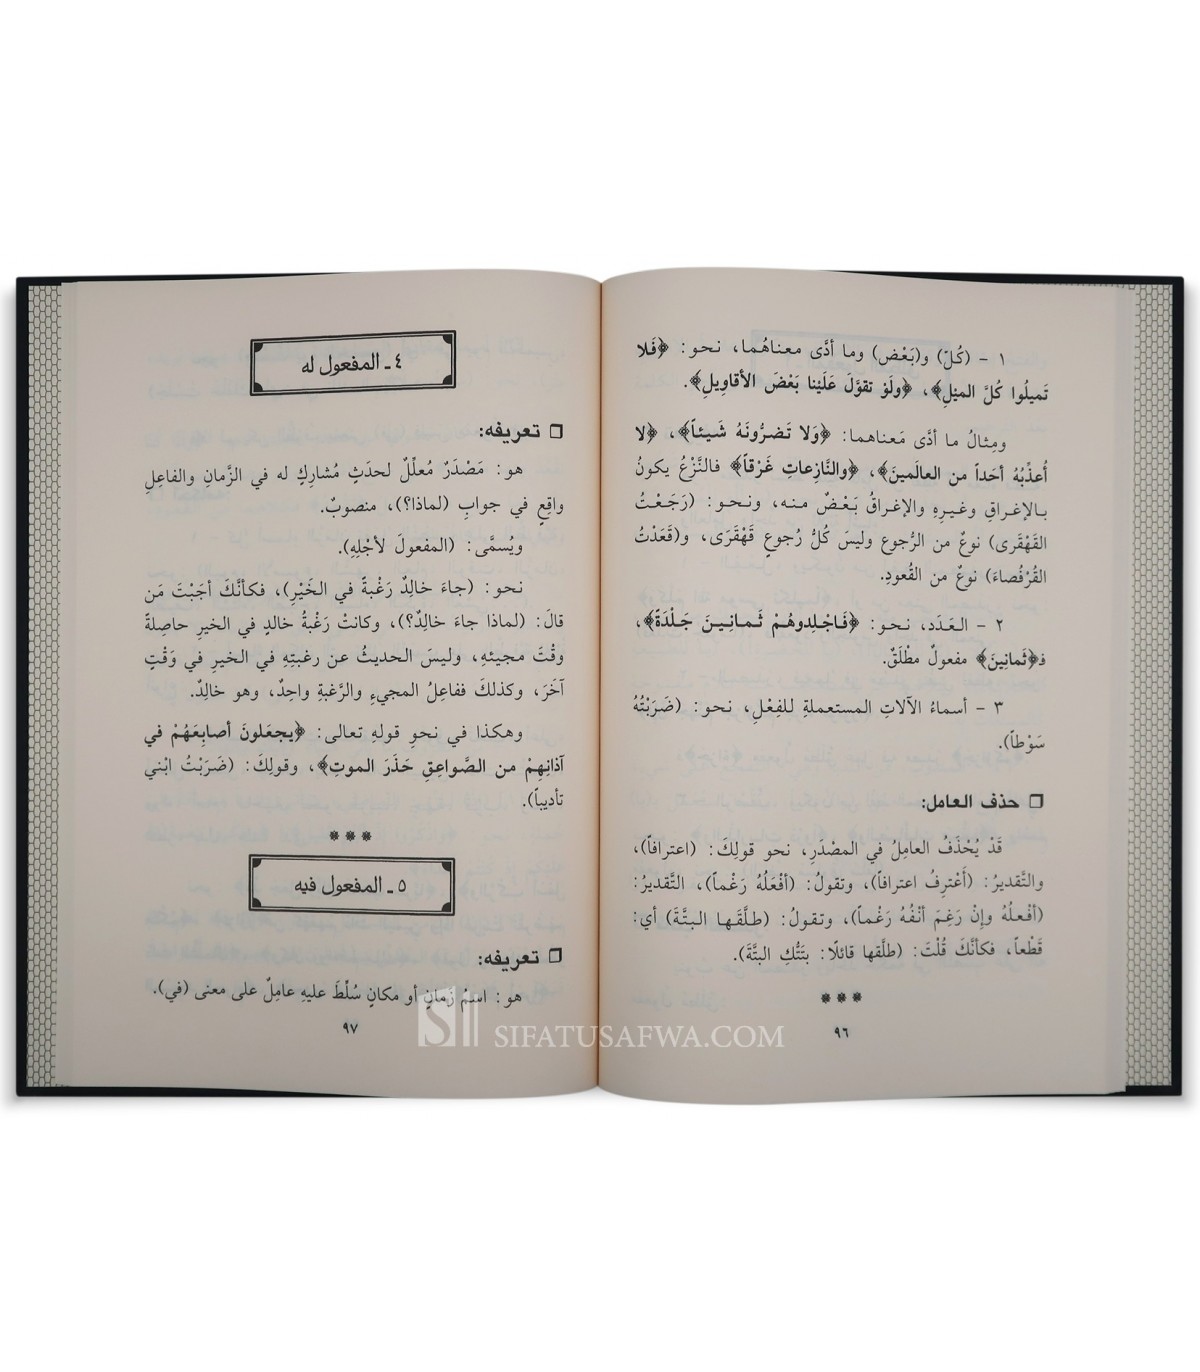 ١ - (كُلّ) و(بَعْض) وما أدَّى معناهُما، نحو: ﴿فَلا
تَميلُوا كُلَّ المَيْلِ﴾، ﴿ولَوْ تقوَّلَ عَلَيْنا بَعْضَ الأقاوِيلِ﴾.
ومِثالُ ما أدَّى مَعناهما: ﴿وَلا تَضرُّونَهُ شَيئاً﴾، ﴿لا
أُعذِّبُهُ أحَداً من العالَمينَ﴾، ﴿والنَّازِعاتِ غَرْقاً﴾ فالنَّزْعُ يكونُ
بالإغراقِ وغيرِهِ والإغراقُ بَعْضٌ منه، ونحو: (رَجَعْتُ
القَهْقَرى) نوعٌ من الرُّجوع وليسَ كُلُّ رُجوعٍ قَهْقَرى، و(قَعَدْتُ
القُرْفُصاءَ) نوعٌ من القُعودِ.
٢ - العَدَد، نحو: ﴿فَاجْلِدوهُمْ ثَمانِينَ جَلْدَةً﴾،
فـ﴿ثَمانِينَ﴾ مفعولٌ مطْلَقٌ.
٣ - أسماءُ الآلاتِ المستعملةِ للفِعْلِ، نحو: (ضَرَبْتُهُ
سَوْطاً).
❒ حذف العامل:
قَدْ يُحْذَفُ العامِلُ في المصْدَرِ، نحو قولِكَ: (اعترافاً)،
والتَّقديرُ: (أَعْتَرِفُ اعترافاً)، وتقولُ: (أفْعَلُهُ رَغْماً)، التَّقديرُ:
(أفْعلُهُ وإنْ رَغِمَ أنْفُهُ رَغْماً)، وتقولُ: (طلَّقَها البتَّةَ) أي:
قَطْعاً، فكأنَّكَ قُلْتَ: (طلَّقها قائلًا: بتَتُّكِ البتَّةَ).
***
٩٦
٤ ـ المفعول له
❒ تعريفه:
هو: مَصْدَرٌ مُعلِّلٌ لحدَثٍ مُشارِكٍ له في الزَّمانِ والفاعِلِ
واقِعٍ في جوابِ (لماذا؟)، منصوبٌ.
ويُسمَّى: (المفعولَ لأجْلِهِ).
نحو: (جاءَ خالِدٌ رَغْبةً في الخَيْرِ)، فكأنَّكَ أجَبْتَ مَن
قالَ: (لماذا جاءَ خالِدٌ؟)، وكانتْ رَغْبةُ خالدٍ في الخيرِ حاصِلةً
وقْتَ مجيئهِ، وليسَ الحديثُ عن رغبتِهِ في الخيرِ في وَقْتٍ
آخَرَ، وكذلكَ ففاعِلُ المجيءِ والرَّغبةِ واحِدٌ، وهو خالِدٌ.
وهكذا في نحوِ قولهِ تعالى: ﴿يجعَلونَ أصابِعَهُمْ في
آذانِهِمْ من الصَّواعِقِ حَذَرَ الموتِ﴾، وقولِكَ: (ضَرَبْتُ ابْني
تأديباً).
***
٥ ـ المفعول فيه
❒ تعريفه:
هو: اسمُ زَمانٍ أو مكانٍ سُلِّطَ عليهِ عامِلٌ على معنى (في).
٩٧
SIFATUSAFWA.COM